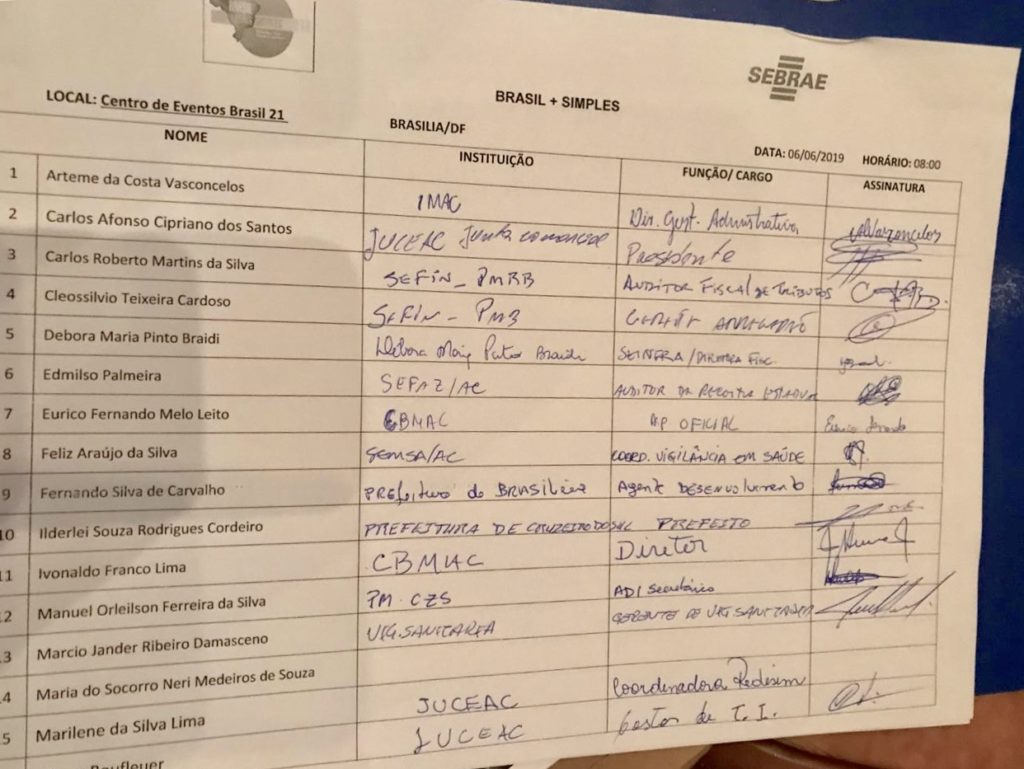 SEBRAE
BRASIL + SIMPLES
LOCAL: Centro de Eventos Brasil 21
BRASILIA/DF
DATA: 06/06/2019 HORÁRIO: 08:00
NOME INSTITUIÇÃO FUNÇÃO/ CARGO ASSINATURA
1 Arteme da Costa Vasconcelos IMAC Dir. Gest. Administrativa
2 Carlos Afonso Cipriano dos Santos JUCEAC Junta comercial Presidente
3 Carlos Roberto Martins da Silva SEFIN_PMRB AUDITOR FISCAL DE TRIBUTOS
4 Cleossilvio Teixeira Cardoso SEFIN - GERENTE
5 Debora Maria Pinto Braidi Debora Maria Pinto Braidi SEINFRA/DIRETORA FISC.
6 Edmilso Palmeira SEFAZ/AC AUDITOR DA RECEITA ESTADUAL
7 Eurico Fernando Melo Leito CBMAC OFICIAL
8 Feliz Araújo da Silva SEMSA/AC COORD. VIGILÂNCIA EM SAÚDE
9 Fernando Silva de Carvalho PREfeitura de BRASIléia Agente DESENvolvimento
10 Ilderlei Souza Rodrigues Cordeiro PREFEITURA DE CRUZEIRO DO SUL PREFEITO
11 Ivonaldo Franco Lima CBMAC Diretor
12 Manuel Orleilson Ferreira da Silva PM.CZS ADI Secretário
13 Marcio Jander Ribeiro Damasceno VIG.SANITARIA GERENTE DE VIG.SANITARIA
14 Maria do Socorro Neri Medeiros de Souza
15 Marilene da Silva Lima JUCEAC Coordenadora Redesim
JUCEAC Gestor de T.I.